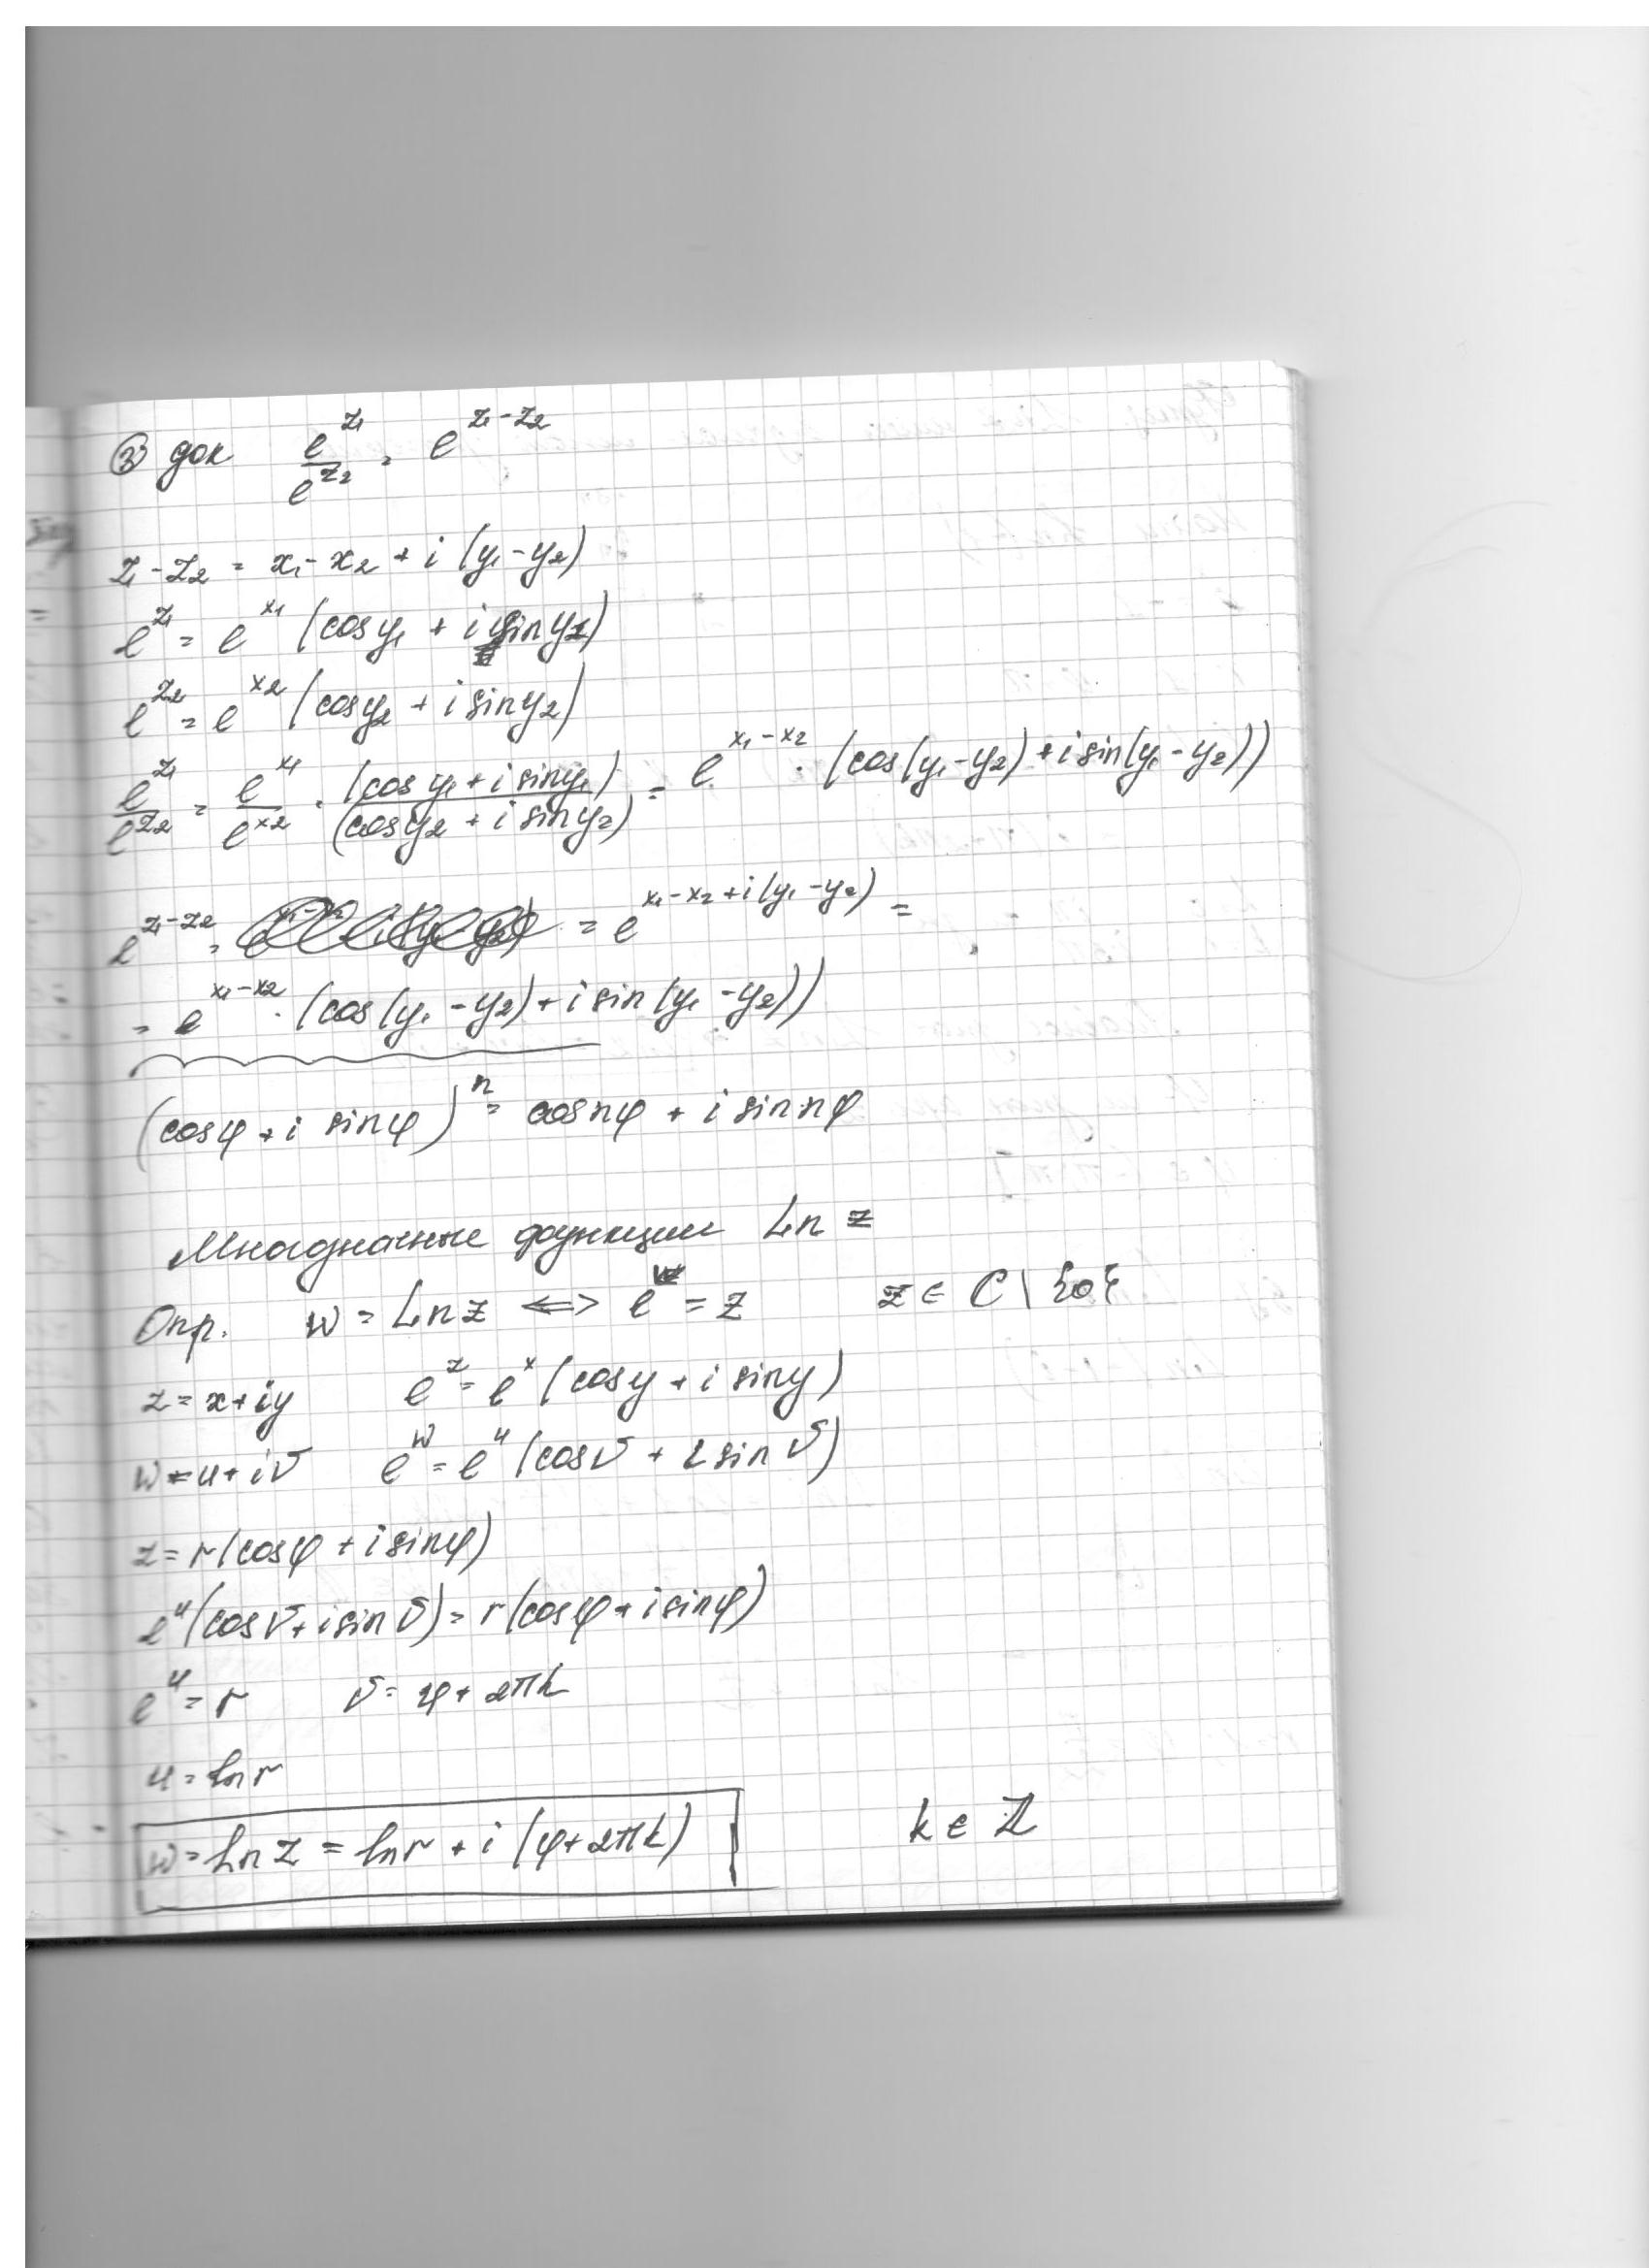 ③ док e^{z₁}/e^{z₂} = e^{z₁-z₂}
z₁-z₂ = x₁-x₂ + i(y₁-y₂)
e^{z₁} = e^{x₁}(cosy₁ + i siny₁)
e^{z₂} = e^{x₂}(cosy₂ + i siny₂)
e^{z₁}/e^{z₂} = e^{x₁}/e^{x₂} · (cosy₁ + i siny₁)/(cosy₂ + i siny₂) = e^{x₁-x₂} · (cos(y₁-y₂) + i sin(y₁-y₂))
e^{z₁-z₂} = = e^{x₁-x₂+i(y₁-y₂)} =
= e^{x₁-x₂} · (cos(y₁-y₂) + i sin(y₁-y₂))
(cosφ + i sinφ)^n = cosnφ + i sinnφ
Многозначные функции Ln z
Опр. w = Ln z ⟺ e^w = z z ∈ C \ {0}
z = x+iy e^z = e^x(cosy + i siny)
w = u+iv e^w = e^u(cosv + i sinv)
z = r(cosφ + i sinφ)
e^u(cosv + i sinv) = r(cosφ + i sinφ)
e^u = r v = φ + 2πk
u = ln r
w = Ln z = ln r + i(φ+2πk) k ∈ ℤ